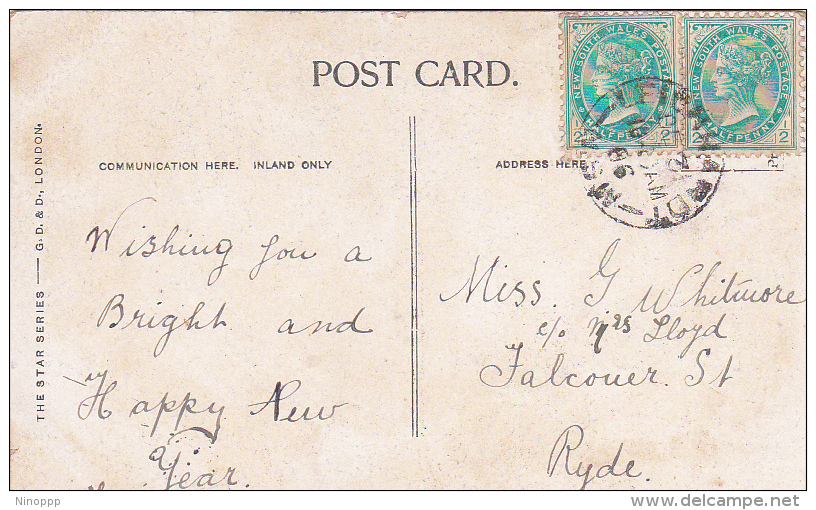 POST CARD.
NEW SOUTH WALES POSTAGE
HALFPENNY
1/2 1/2
NEW SOUTH WALES POSTAGE
HALFPENNY
1/2 1/2
COMMUNICATION HERE. INLAND ONLY
ADDRESS HERE.
AM
N.S.W
THE STAR SERIES — G. D. & D., LONDON.
Wishing you a
Bright and
Happy New
Year.
Miss. G Whitmore
c/o Mrs Lloyd
Falconer. St
Ryde.
Ninoppp
delcampe.net